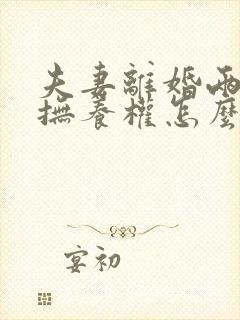 夫妻離婚兩
撫養權怎麼
宴初